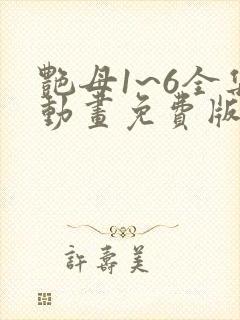 艷母1~6全集
動畫免費版
許壽美